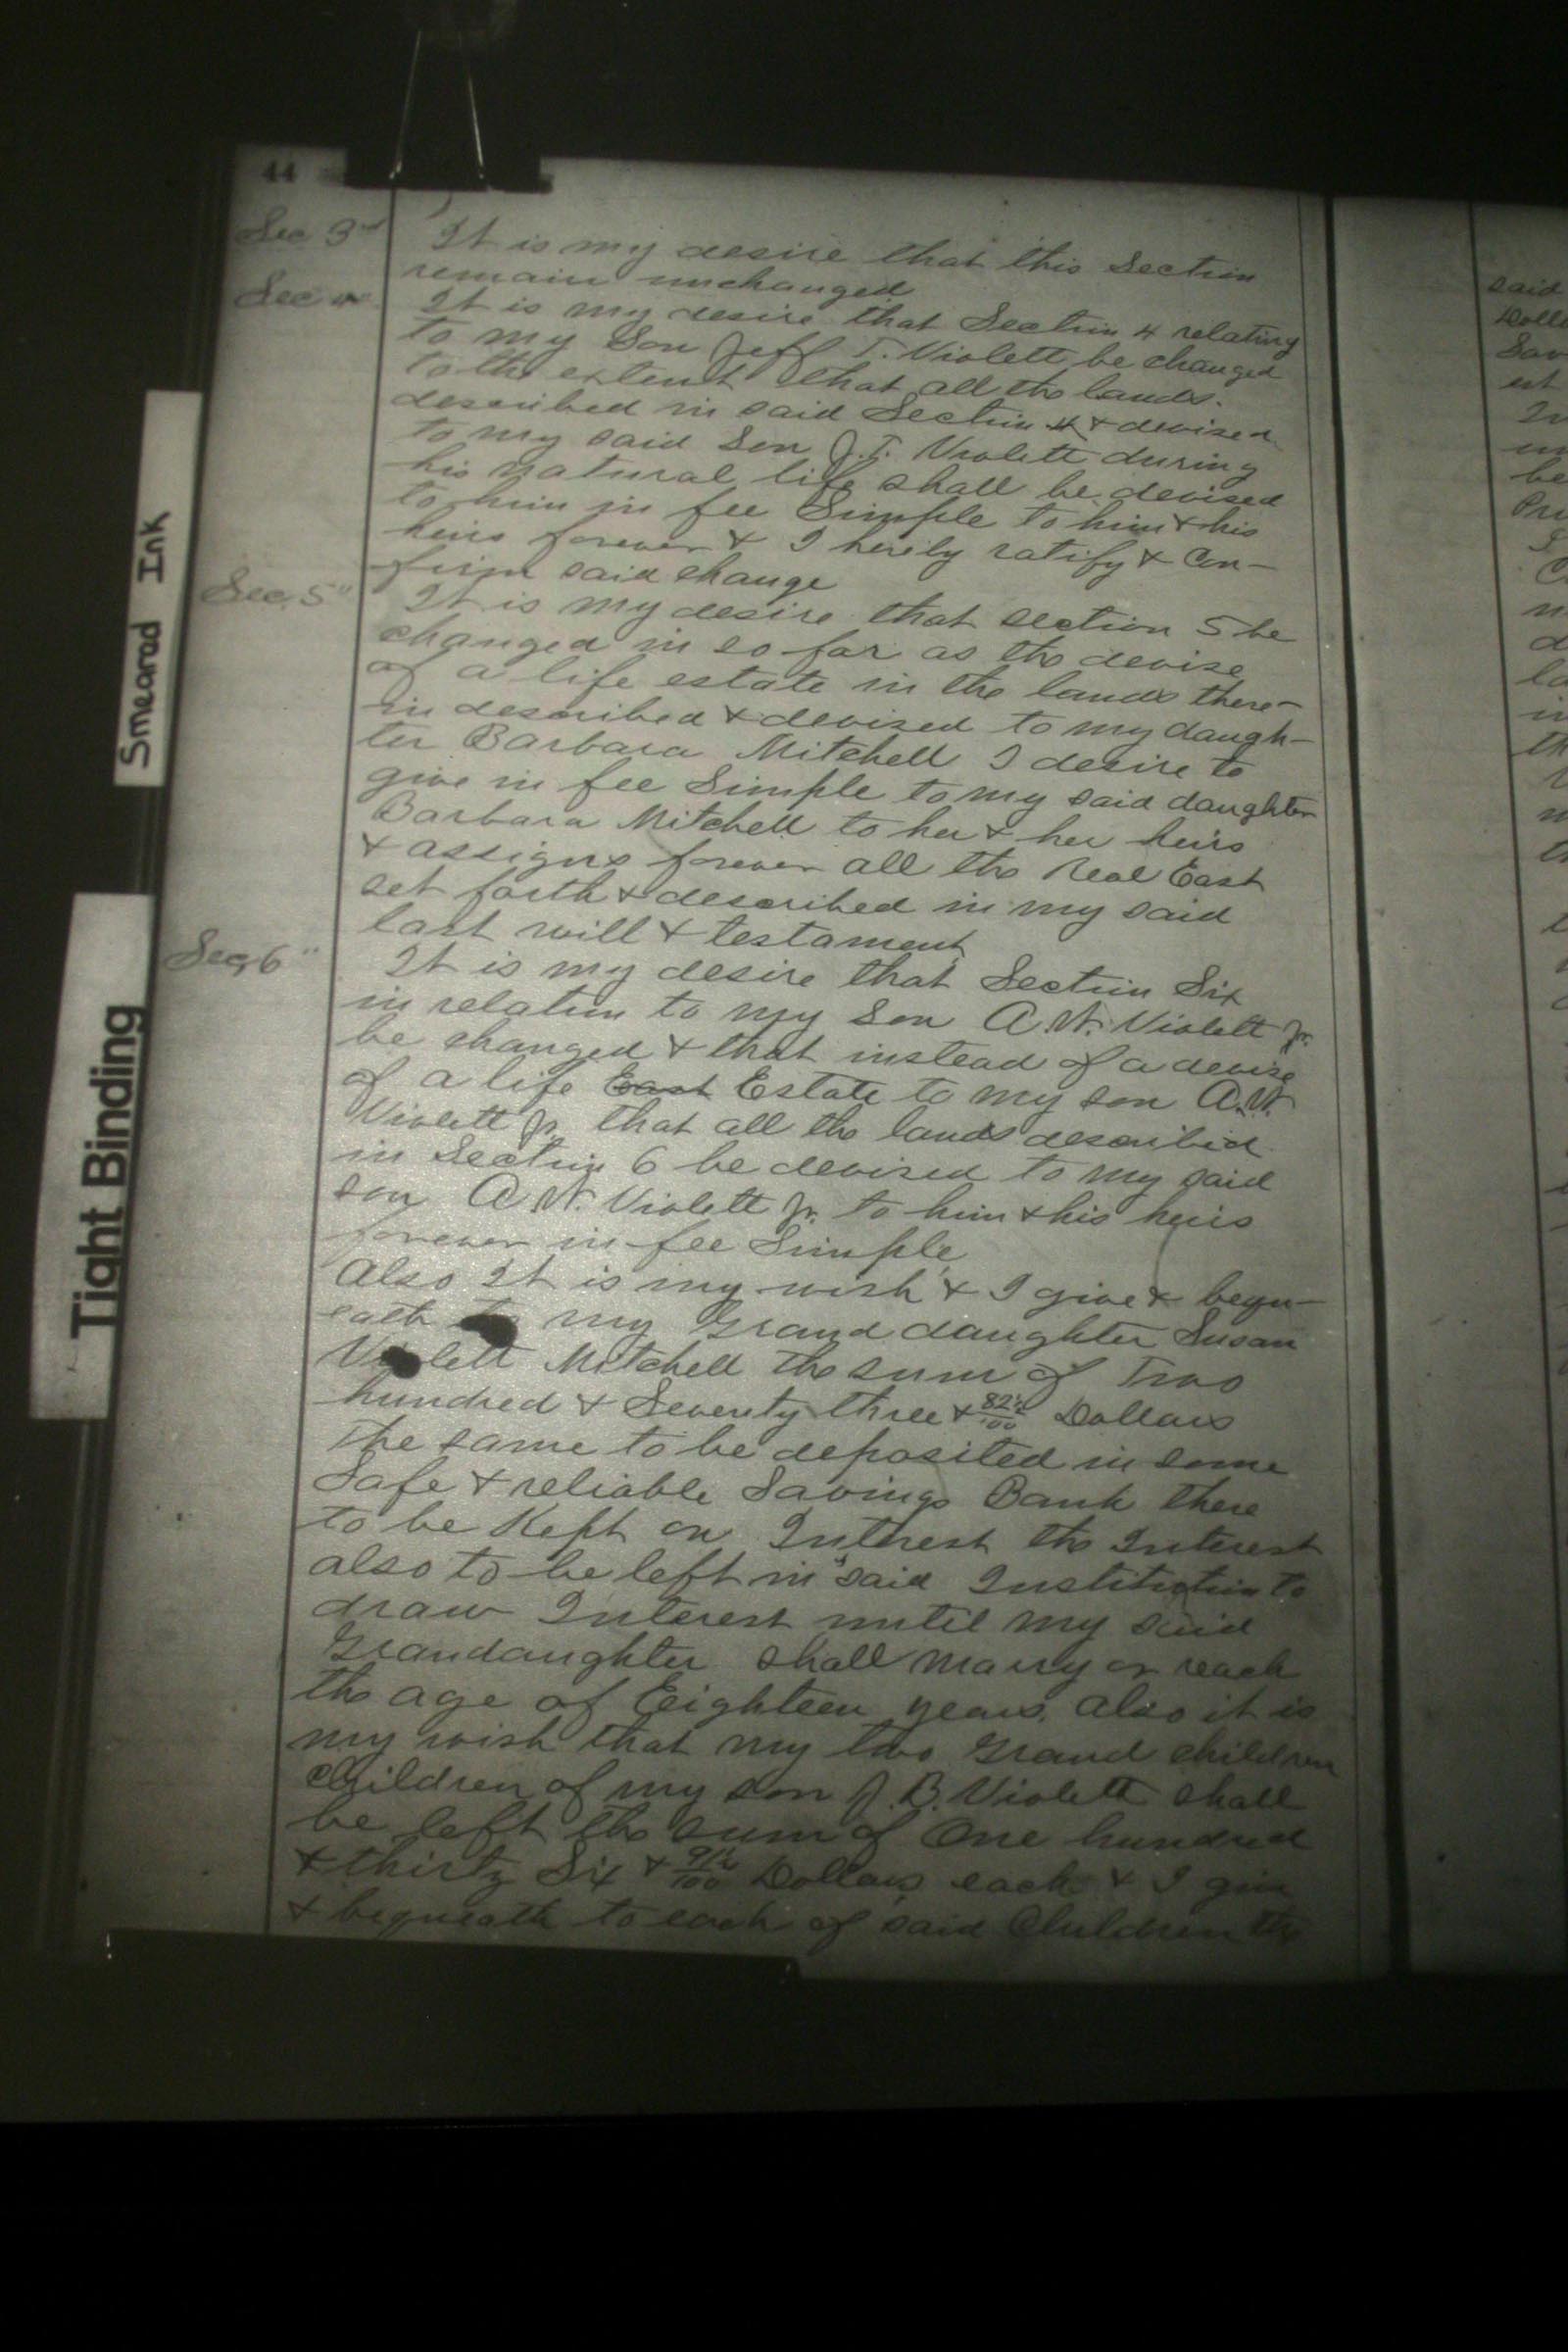 44
Sec 3rd It is my desire that this Section
remain unchanged
Sec It is my desire that Section 4 relating
to my Son Jeff T. Violett be changed
to the extent that all the lands
described in said Section 4 & devised
to my said Son J. T. Violett during
his natural life shall be devised
to him in fee Simple to him & his
heirs forever & I hereby ratify & Con-
firm said change
Sec. 5" It is my desire that section 5 be
changed in so far as the devise
of a life estate in the lands there-
in described & devised to my daugh-
ter Barbara Mitchell I desire to
give in fee Simple to my said daughter
Barbara Mitchell to her & her heirs
& assigns forever all the Real East
set forth & described in my said
last will & testament
Sec, 6" It is my desire that Section Six
in relation to my Son A. W. Violett Jr.
be changed & that instead of a devise
of a life East Estate to my son A. W.
Violett Jr. that all the lands described
in Section 6 be devised to my said
son A W. Violett Jr. to him & his heirs
forever in fee Simple
Also It is my wish & I give & bequ-
eath to my Grand daughter Susan
Violett Mitchell the sum of Two
hundred & Seventy three & 82½/100 Dollars
The same to be deposited in some
Safe & reliable Savings Bank there
to be Kept on Interest the Interest
also to be left in said Institution to
draw Interest until my said
Grandaughter shall marry or reach
the age of Eighteen years. Also it is
my wish that my two Grand children
Children of my son J. B. Violett shall
be left the sum of One hundred
& thirty Six & 91½/100 Dollars each & I give
& bequeath to each of said Children the
Smearad Ink
Tight Binding
said
est
be